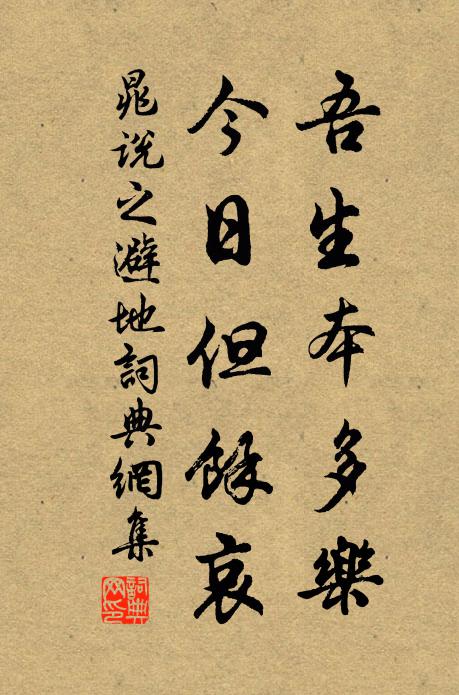 吾生本多樂
今日但餘哀
晁說之避地詞典網集
詞典網印